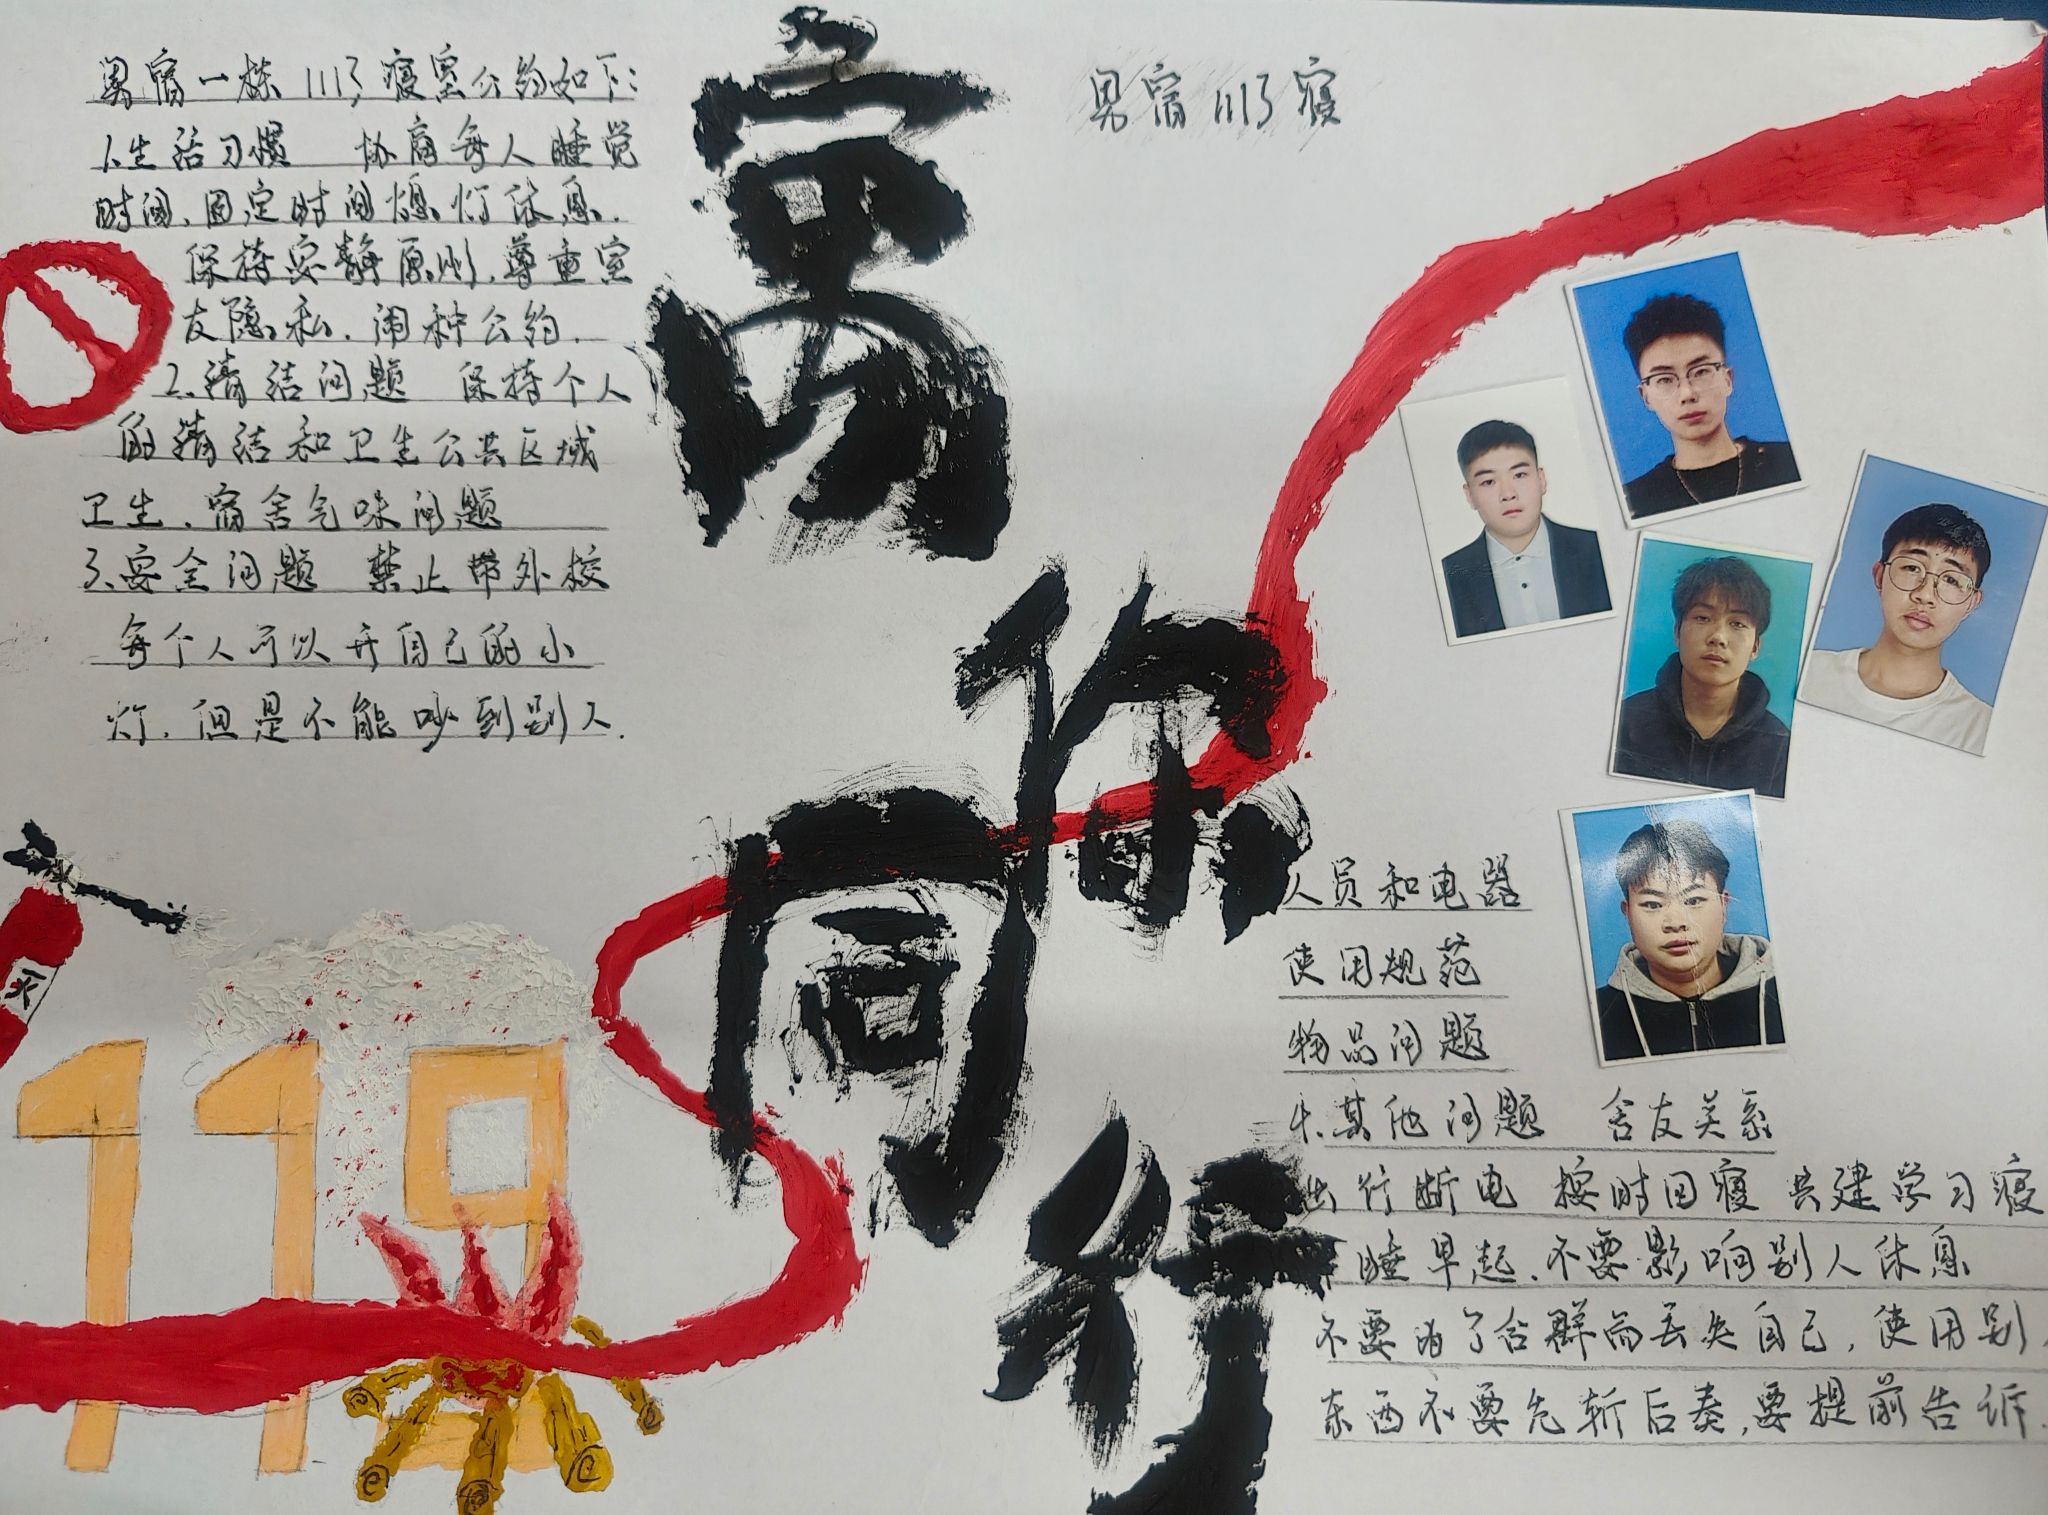 男宿一栋1113寝室公约如下:
1.生活习惯 协商每人睡觉
时间、固定时间熄灯休息.
保持安静原则,尊重室
友隐私.闹种公约.
2.清洁问题 保持个人
的清洁和卫生公共区域
卫生、宿舍气味问题
3.安全问题 禁止带外校
每个人可以开自己的小
灯.但是不能吵到别人.
寓
你
同
行
男宿1113寝
火
119
人员和电器
使用规范
物品问题
4.其他问题 舍友关系
出行断电 按时回寝 共建学习寝
睡早起.不要影响别人休息
不要为了合群而丢失自己,使用别
东西不要先斩后奏,要提前告诉.